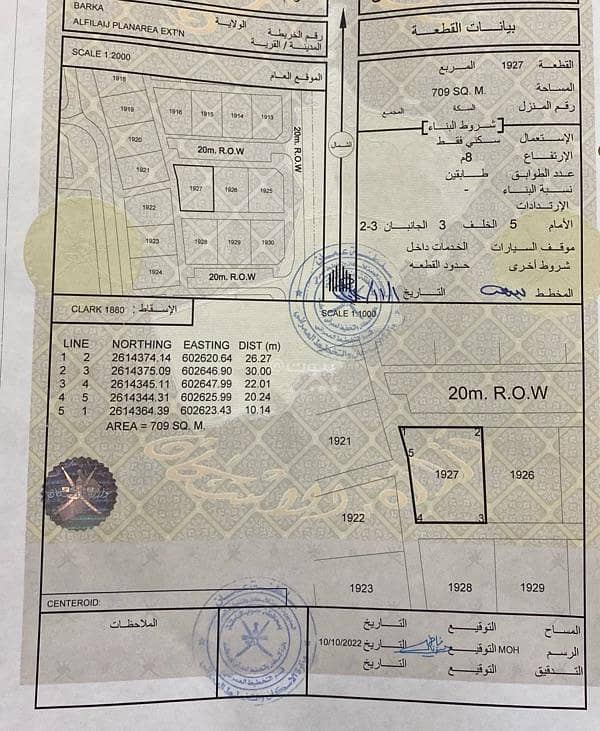 BARKA
ALFILAIJ PLANAREA EXT'N
الولاية
رقم الخريطة
المدينة / القرية
SCALE 1:2000
الموقع العام
1918
1919
1920
1921
1922
1923
1924
1916 1915 1914 1913
20m. R.O.W
20m. R.O.W
1927 1926 1925
1928 1929 1930
20m. R.O.W
الشمال
بيانات القطعة
القطعة 1927 المربع
المساحة 709 SQ. M.
رقم المنزل السكة المجمع
[شروط البناء]
الإستعمال سكني فقط
الإرتفاع 8م
عدد الطوابق طابقين
نسبة البناء -
الإرتدادات
الأمام 5 الخلف 3 الجانبان 3-2
موقف السيارات الخدمات داخل
شروط أخرى حدود القطعه
المخطط التاريخ
CLARK 1880 الإسقاط:
SCALE 1:1000
LINE NORTHING EASTING DIST (m)
1 2 2614374.14 602620.64 26.27
2 3 2614375.09 602646.90 30.00
3 4 2614345.11 602647.99 22.01
4 5 2614344.31 602625.99 20.24
5 1 2614364.39 602623.43 10.14
AREA = 709 SQ. M.
20m. R.O.W
1921
1922
1923
2
5
4
3
1927
1926
1928
1929
CENTEROID:
الملاحظات
المساح التوقيع التاريخ
الرسم MOH التوقيع التاريخ 10/10/2022
التدقيق التوقيع التاريخ